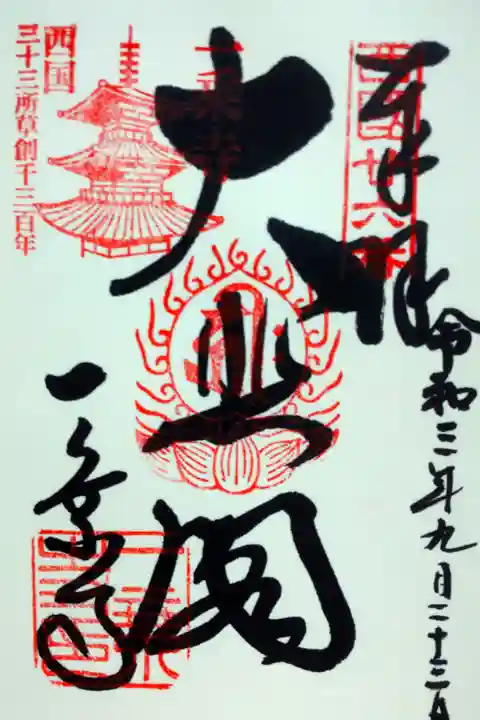 奉拝
令和三年九月二十三日
西國廿六番
大悲閣
一乗寺
西国
三十三所草創千三百年